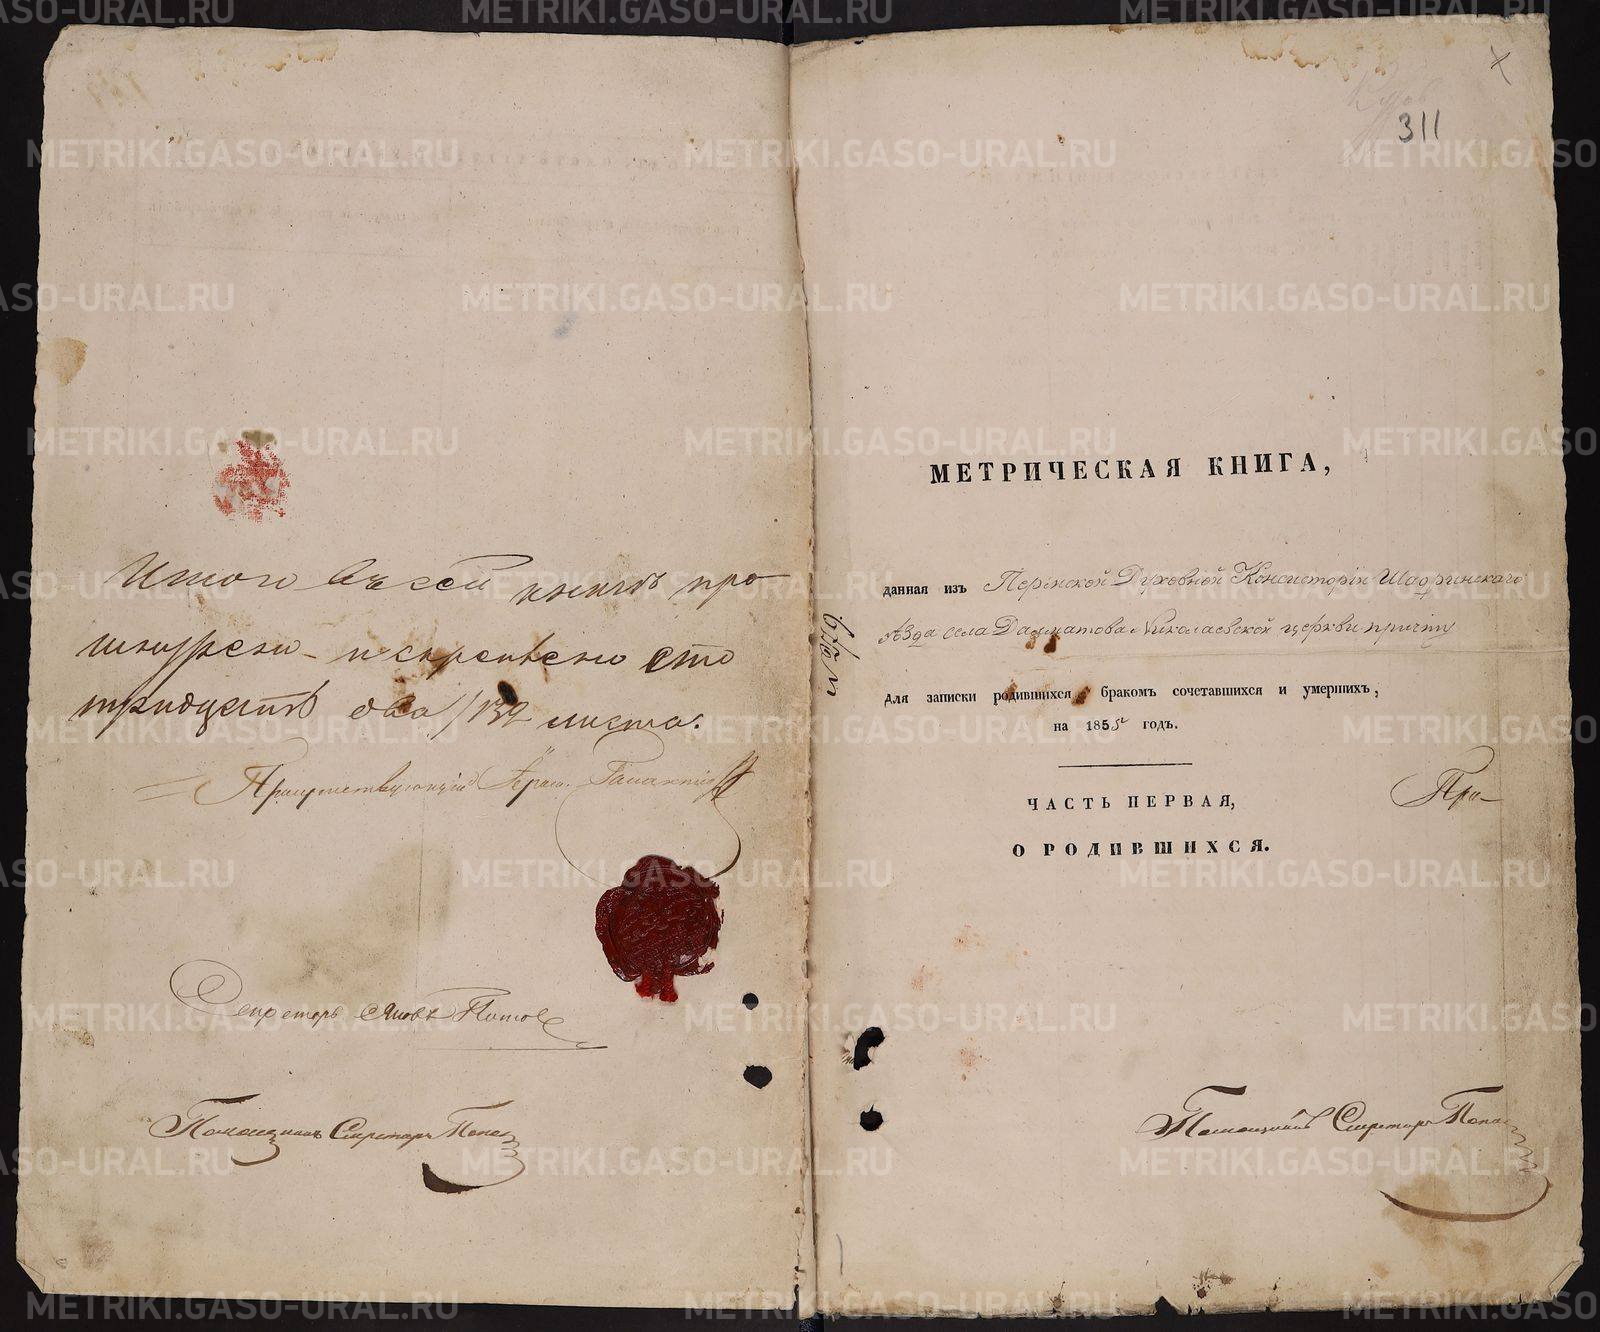 Итого въ сей книгѣ про
шнурено и скреплено сто
тридцать два /132 листа.
Присутствующій
Секретарь Яковъ Попов
Помощникъ Секретаря Попов
311
МЕТРИЧЕСКАЯ КНИГА,
данная изъ Пермской Духовной Консисторіи Шадринскаго
уѣзда села Далматова Николаевской церкви причту
для записки родившихся, бракомъ сочетавшихся и умершихъ,
на 1855 годъ.
ЧАСТЬ ПЕРВАЯ,
При-
О РОДИВШИХСЯ.
Помощникъ Секретаря Попов
METRIKI.GASO-URAL.RU